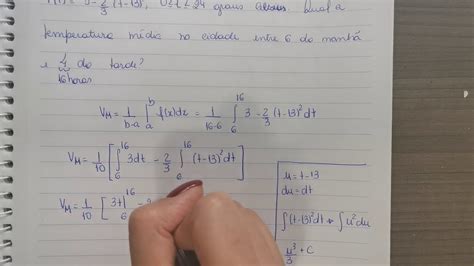 (t-13)², 0≤t≤24 graus Celsius. Qual a
temperatura média na cidade entre 6 da manhã
e 4 da tarde?
16 horas
V_M = 1/(b-a) ∫_a^b f(x)dx = 1/(16-6) ∫_6^16 3 - 2/3 (t-13)² dt
V_M = 1/10 [∫_6^16 3dt - 2/3 ∫_6^16 (t-13)² dt]
V_M = 1/10 [3t|_6^16 - 2
u = t-13
du = dt
∫(t-13)² dt → ∫u² du
u³/3 + C